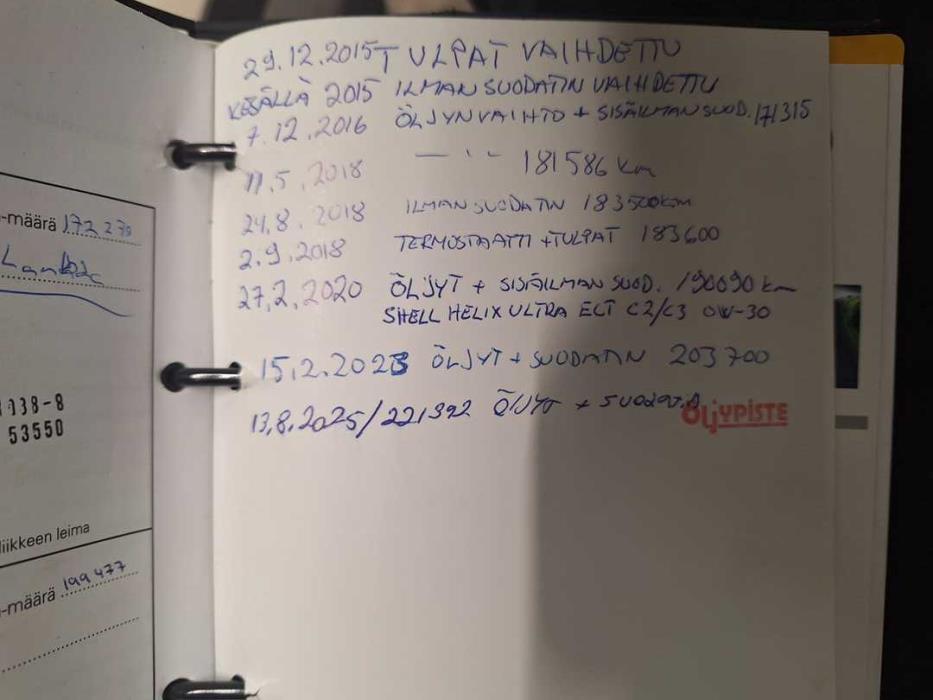 29.12.2015 TULPAT VAIHDETTU
KESÄLLÄ 2015 ILMANSUODATIN VAIHDETTU
7.12.2016 ÖLJYNVAIHTO + SISÄILMANSUOD. 171315
11.5.2018 — ·· — 181586 km
24.8.2018 ILMANSUODATIN 183500km
2.9.2018 TERMOSTAATTI + TULPAT 183600
27.2.2020 ÖLJYT + SISÄILMANSUOD. 190090 km
SHELL HELIX ULTRA ECT C2/C3 0W-30
15.2.2023 ÖLJYT + SUODATIN 203700
13.8.2025/221392 ÖLJYT + SUODATIN
ÖLJYPISTE
-määrä 172270
1038-8
53550
liikkeen leima
-määrä 199477